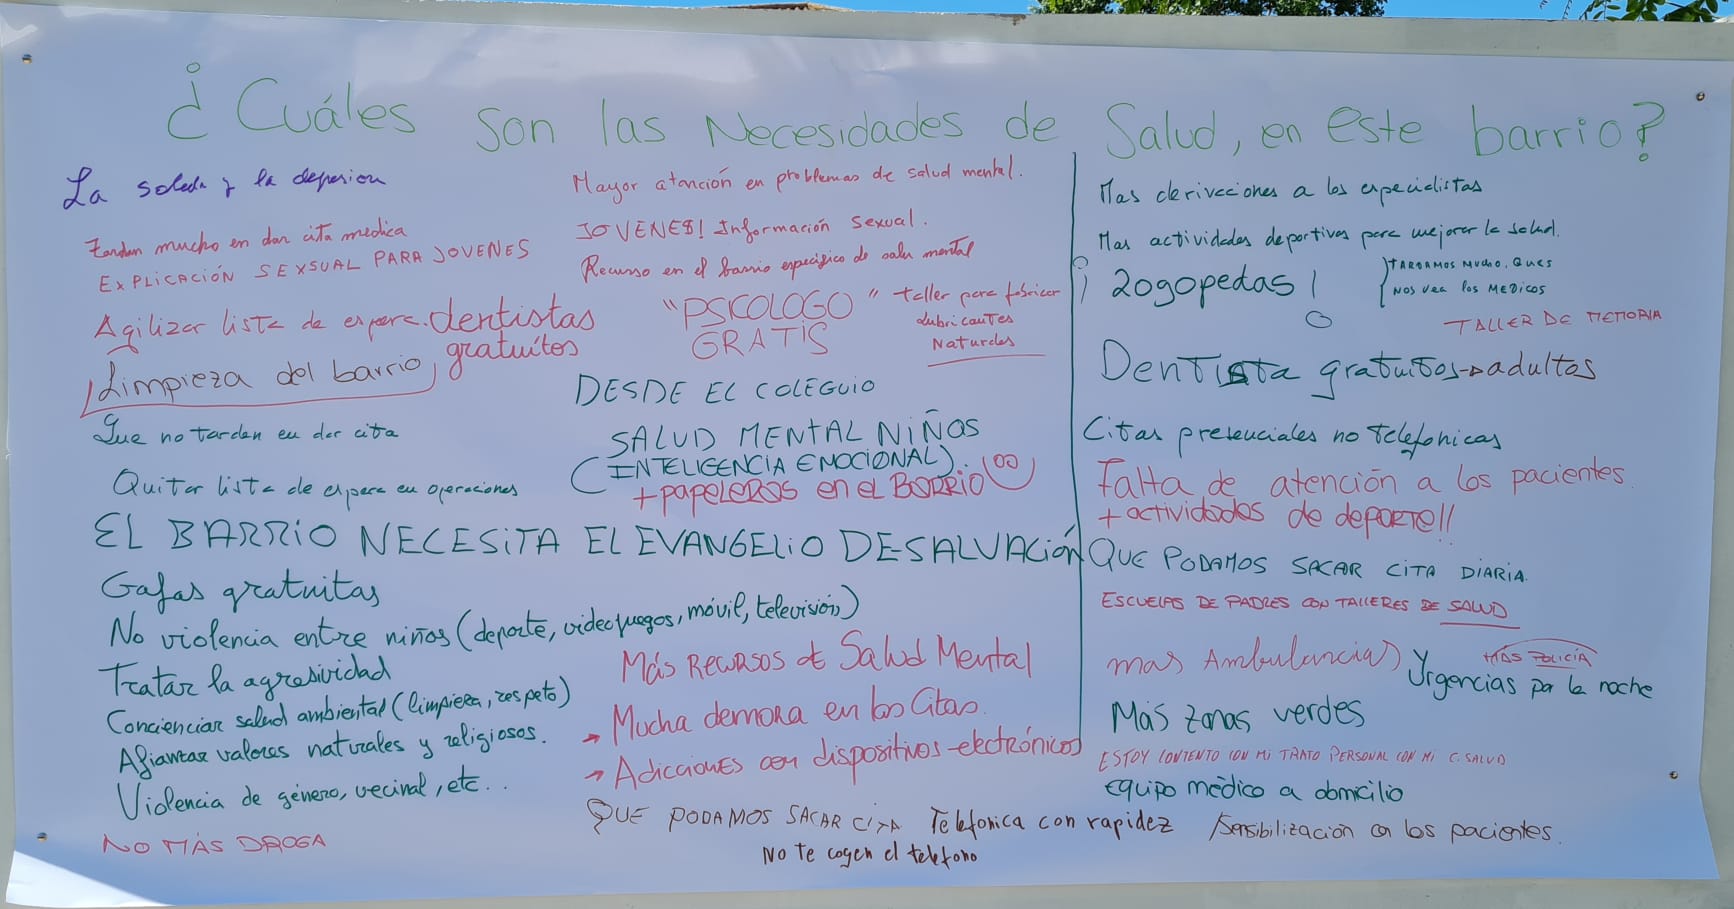 ¿Cuáles son las Necesidades de Salud, en este barrio?
La soleda y la depresion
tardan mucho en dar cita medica
EXPLICACIÓN SEXSUAL PARA JOVENES
Agilizar lista de espera. dentistas
gratuitos
Limpieza del barrio
Que no tarden en dar cita
Quitar lista de espera en operaciones
Mayor atención en problemas de salud mental.
JOVENES! Información sexual.
Recurso en el barrio especifico de salu mental
"PSICOLOGO"
GRATIS
taller para fabricar
lubricantes
Naturales
DESDE EL COLEGUIO
SALUD MENTAL NIÑOS
(INTELIGENCIA EMOCIONAL).
+ papeleros en el BORRIO
EL BARRIO NECESITA EL EVANGELIO DE SALVACIÓN
Gafas gratuitas
No violencia entre niños (deporte, videojuegos, móvil, televisión)
Tratar la agresividad
Concienciar salud ambiental (limpieza, respeto)
Afianzar valores naturales y religiosos.
Violencia de género, vecinal, etc...
NO MÁS DROGA
Más Recursos de Salud Mental
→ Mucha demora en las Citas.
→ Adicciones con dispositivos electrónicos
QUE PODAMOS SACAR CITA Telefonica con rapidez
No te cogen el telefono
Mas derivaciones a los especialistas
Mas actividades deportivas para mejorar la salud.
¡Logopedas!
TARDAMOS MUCHO, QUES
NOS VEA LOS MEDICOS
TALLER DE MEMORIA
Dentista gratuitos → adultos
Citas presenciales no telefonicas
Falta de atención a los pacientes.
+ actividades de deporte!!
QUE PODAMOS SACAR CITA DIARIA.
ESCUELAS DE PADRES CON TALLERES DE SALUD
mas Ambulancias y
MÁS POLICÍA
Urgencias por la noche
Más zonas verdes
ESTOY CONTENTO CON MI TRATO PERSONAL CON MI C. SALUD
equipo médico a domicilio
Sensibilización con los pacientes.